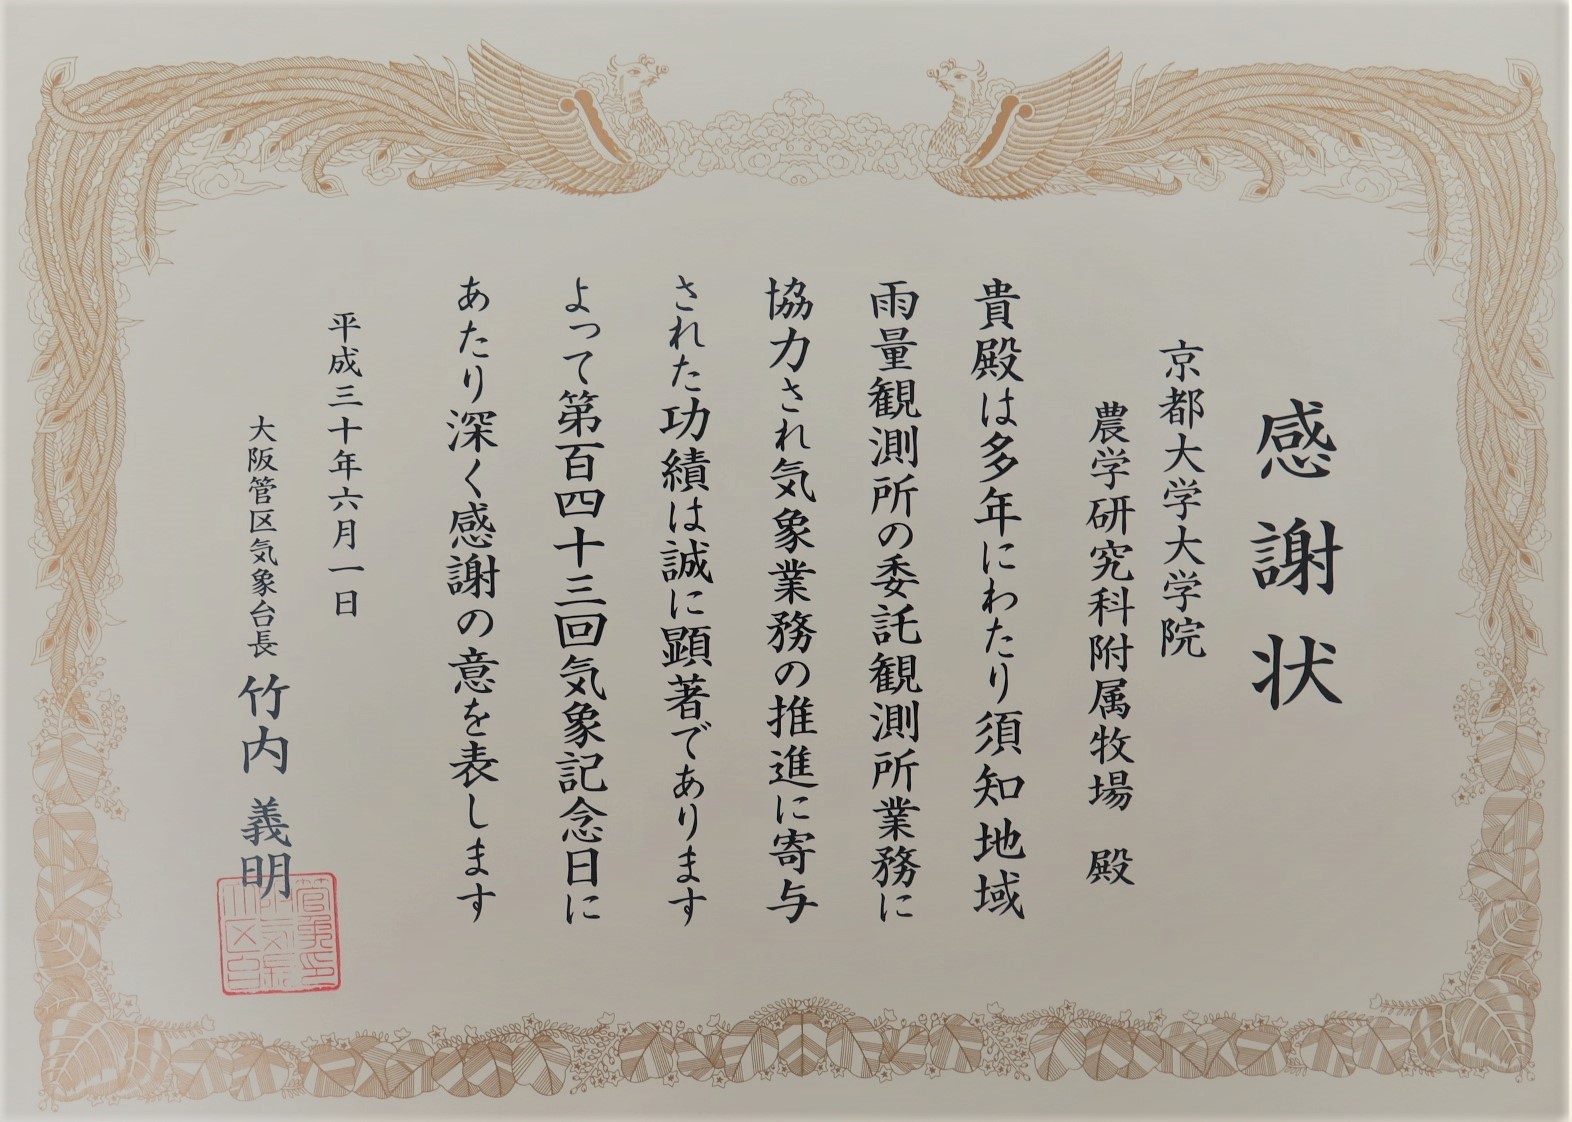 感謝状
京都大学大学院
農学研究科附属牧場 殿
貴殿は多年にわたり須知地域
雨量観測所の委託観測所業務に
協力され気象業務の推進に寄与
された功績は誠に顕著であります
よって第百四十三回気象記念日に
あたり深く感謝の意を表します
平成三十年六月一日
大阪管区気象台長 竹内 義明